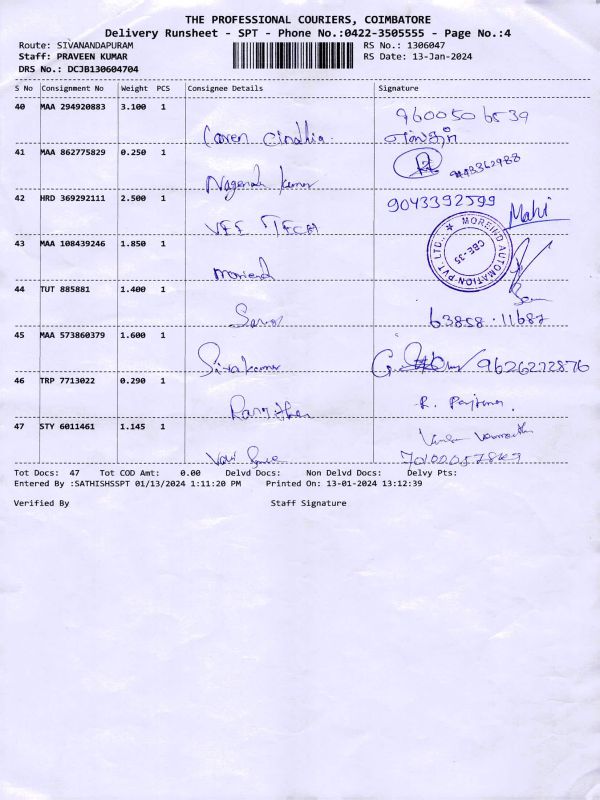 THE PROFESSIONAL COURIERS, COIMBATORE
Delivery Runsheet - SPT - Phone No.:0422-3505555 - Page No.:4
Route: SIVANANDAPURAM RS No.: 1306047
Staff: PRAVEEN KUMAR RS Date: 13-Jan-2024
DRS No.: DCJB130604704
S No Consignment No Weight PCS Consignee Details Signature
40 MAA 294920883 3.100 1
9600506539
41 MAA 862775829 0.250 1
Nagendra kumar
42 HRD 369292111 2.500 1 9043392599 Mahi
VEE TECH
MOREIRD AUTOMATION PVT. LTD. ★ CBE-35
43 MAA 108439246 1.850 1
44 TUT 885881 1.400 1
63858 11687
45 MAA 573860379 1.600 1
Sivakumar 9626272876
46 TRP 7713022 0.290 1
Ranjithen
47 STY 6011461 1.145 1
Tot Docs: 47 Tot COD Amt: 0.00 Delvd Docs: Non Delvd Docs: Delvy Pts:
Entered By :SATHISHSSPT 01/13/2024 1:11:20 PM Printed On: 13-01-2024 13:12:39
Verified By Staff Signature